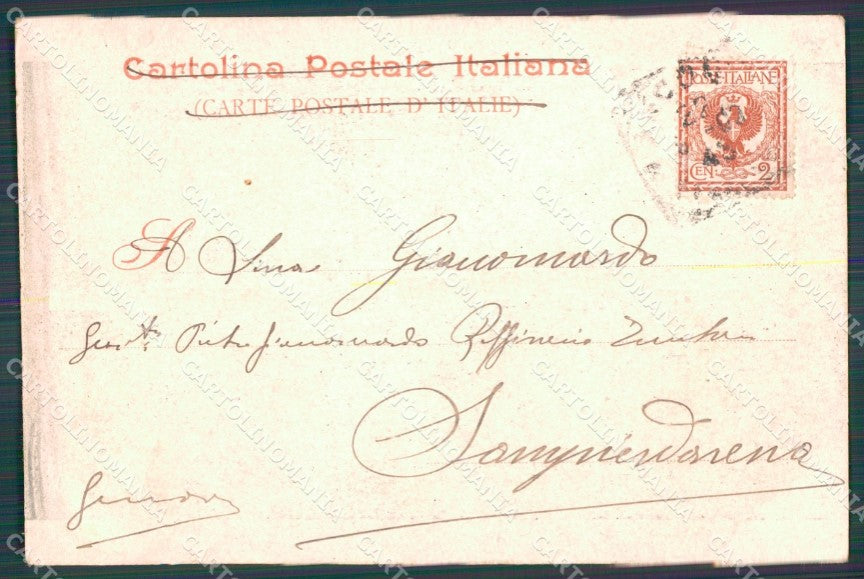 Cartolina Postale Italiana
(CARTE POSTALE D'ITALIE)
POSTE ITALIANE
CEN. 2
A Lina Gianomardo
Raffineria Zuccheri
Sampierdarena
Genova
CARTOLINOMANIA